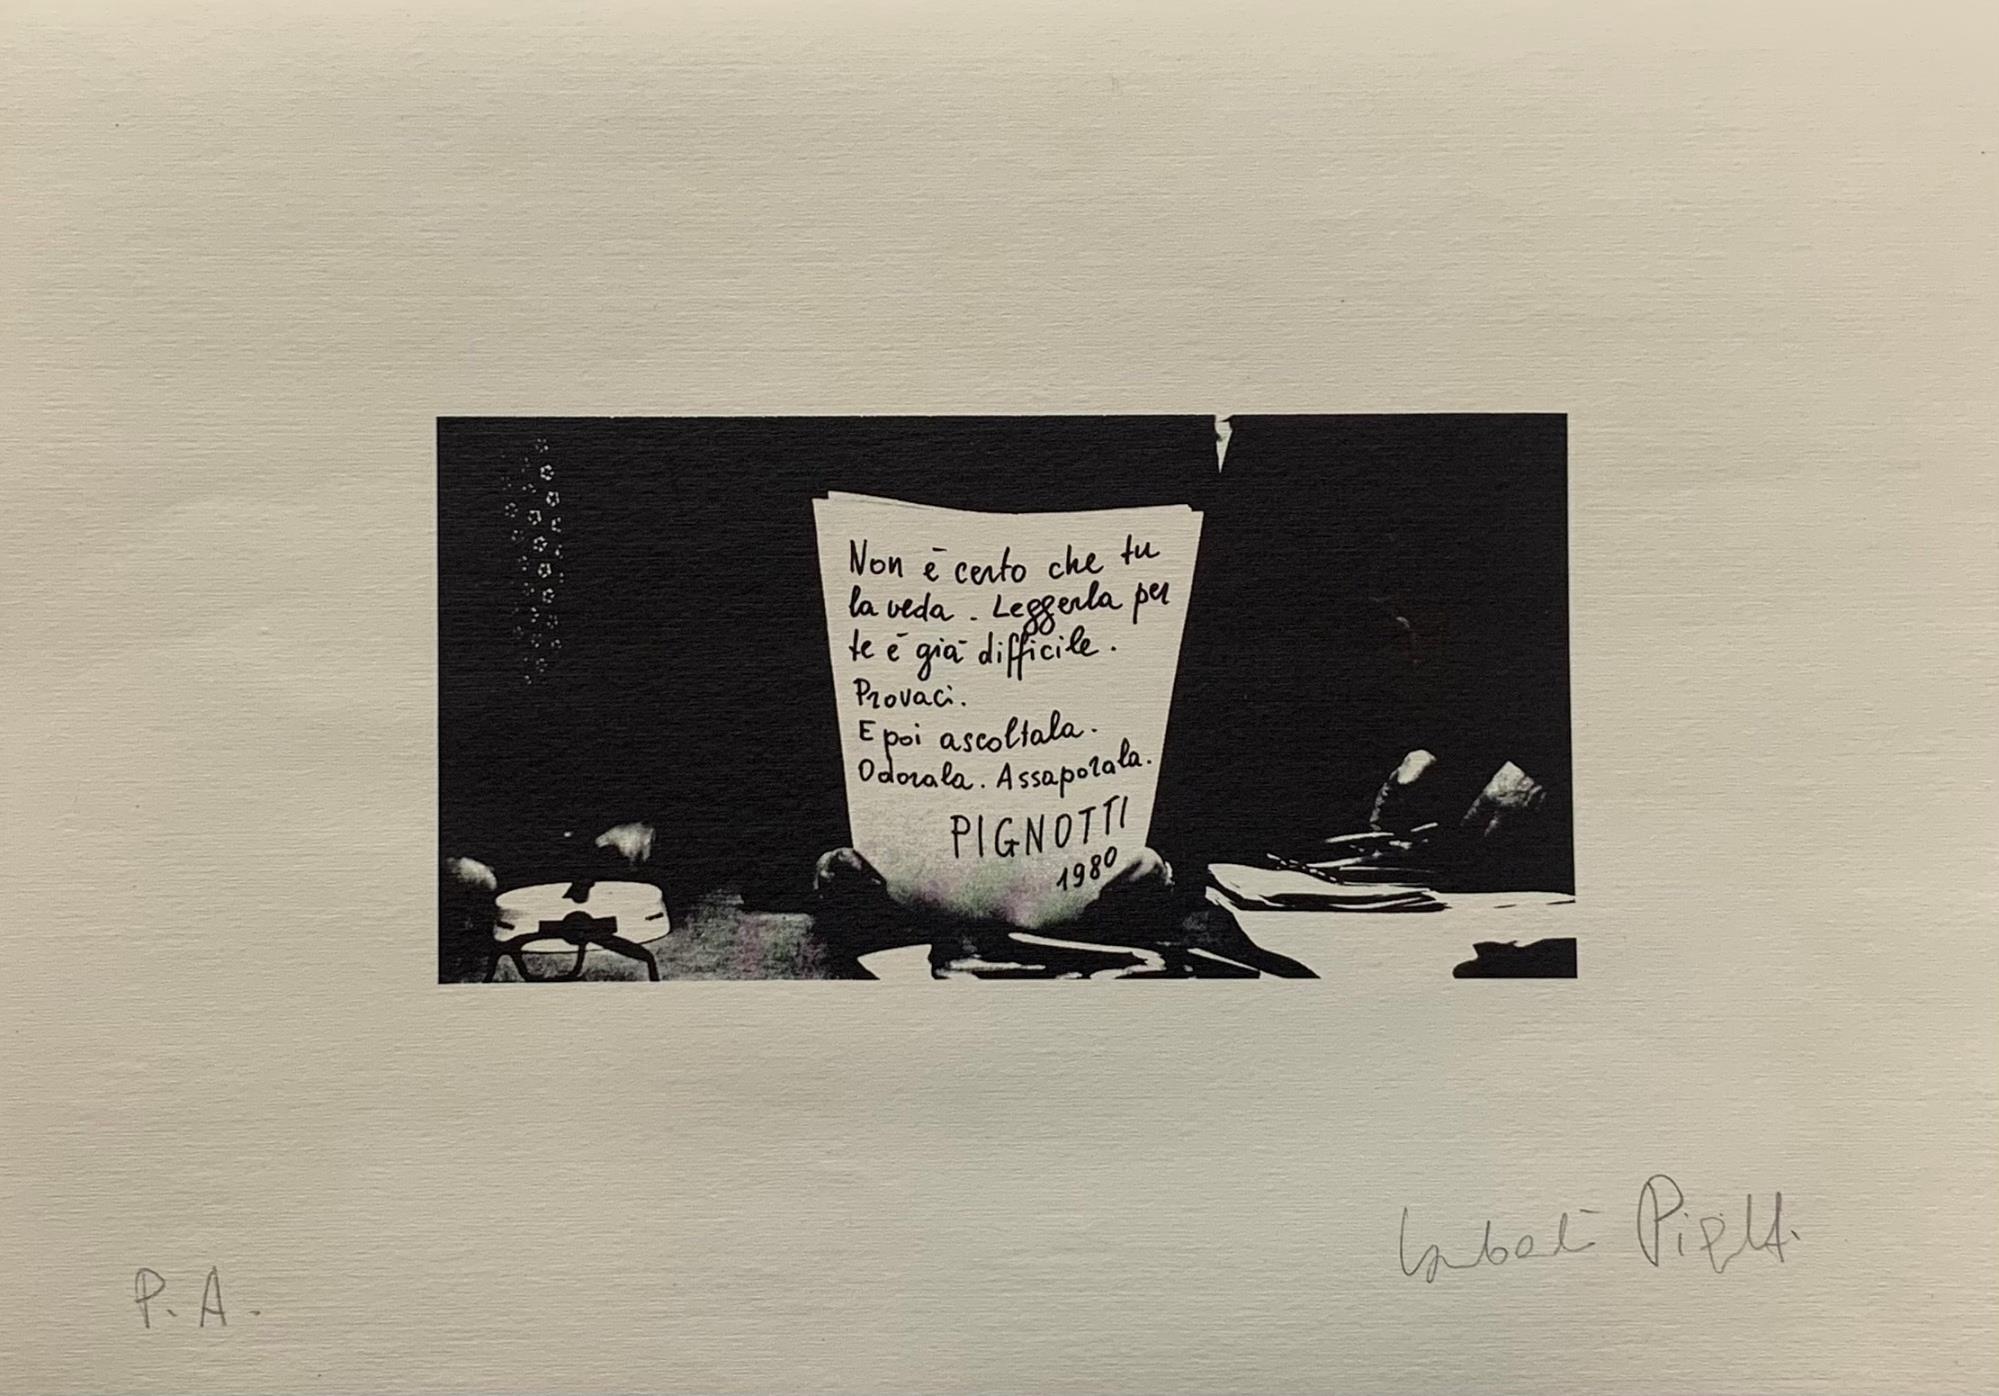 Non è certo che tu
la veda. Leggerla per
te è già difficile.
Provaci.
E poi ascoltala.
Odorala. Assaporala.
PIGNOTTI
1980
P.A.
Lamberto Pignotti